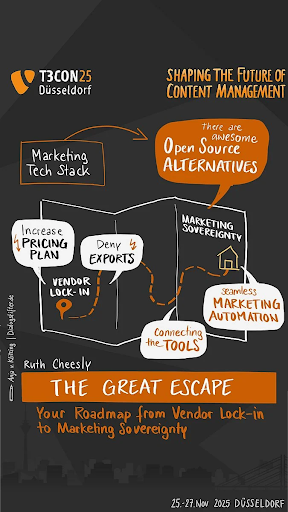 T3CON25
Düsseldorf
SHAPING THE FUTURE OF
CONTENT MANAGEMENT
Marketing
Tech Stack
there are
awesome
Open Source
ALTERNATIVES
Increase
PRICING
PLAN
Deny
EXPORTS
MARKETING
SOVEREIGNTY
VENDOR
LOCK-IN
seamless
MARKETING
AUTOMATION
Connecting
the TOOLS
Ruth Cheesly
THE GREAT ESCAPE
Your Roadmap from Vendor Lock-in
to Marketing Sovereignty
25.-27. Nov 2025 DÜSSELDORF